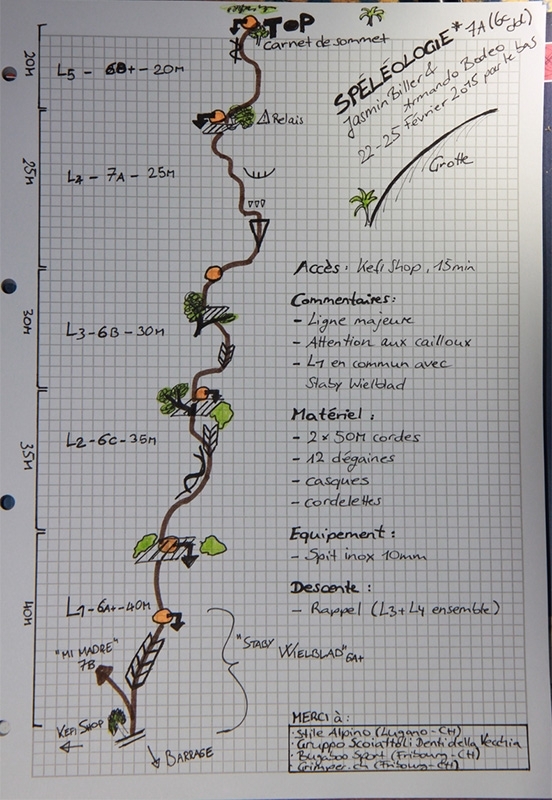 TOP
Carnet de sommet
L5 - 6B+ - 20M
20M
Relais
SPÉLÉOLOGIE* 7A (6c
Jasmin Biller &
Armando Bodeo
22-25 Février 2015 par le bas
Grotte
L4 - 7A - 25M
25M
Accès: Kefi Shop, 15min
Commentaires:
- Ligne majeure
- Attention aux cailloux
- L1 en commun avec
Staby Wielblad
L3-6B-30M
30M
Matériel:
- 2 x 50M cordes
- 12 dégaines
- casques
- cordelettes
L2-6C-35M
35M
Equipement:
- Spit inox 10mm
Descente:
- Rappel (L3+L4 ensemble)
L1-6A+-40M
40M
"MI MADRE"
7B
"STABY WIELBLAD" 6A+
KEFI SHOP
BARRAGE
MERCI à:
· Stile Alpino (Lugano-CH)
· Gruppo Scoiattoli Denti della Vecchia
· Bugaboo Sport (Fribourg-CH)
· Grimper.ch (Fribourg-CH)